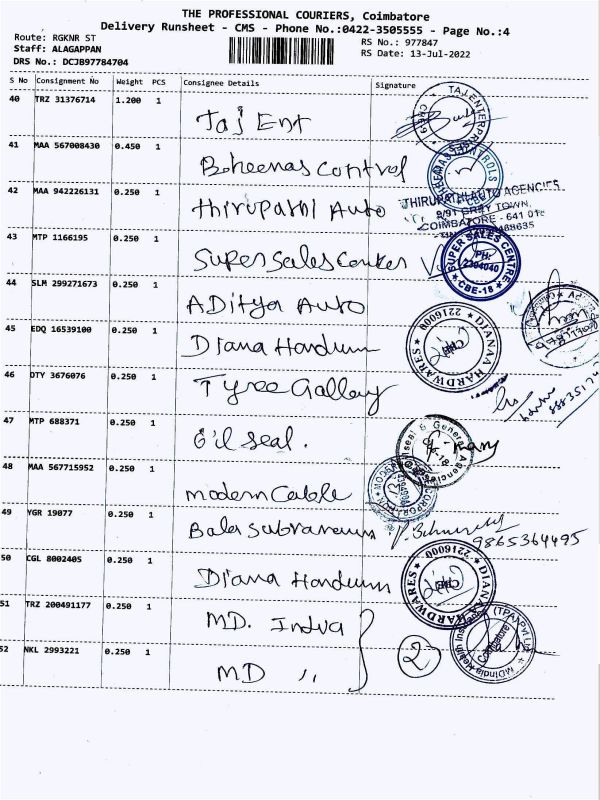 THE PROFESSIONAL COURIERS, Coimbatore
Delivery Runsheet - CMS - Phone No.:0422-3505555 - Page No.:4
Route: RGKNR ST
Staff: ALAGAPPAN
DRS No.: DCJB97784704
RS No.: 977847
RS Date: 13-Jul-2022
S No Consignment No Weight PCS Consignee Details Signature
40 TRZ 31376714 1.200 1 Taj Ent
41 MAA 567008430 0.450 1 Boheenas Control
42 MAA 942226131 0.250 1 Thirupathi Auto
THIRUPATHI AUTO AGENCIES
9/91 GREY TOWN,
COIMBATORE - 641 018
43 MTP 1166195 0.250 1 Super Sales Center
SUPER SALES CENTRE
PH:
2304040
CBE-18
44 SLM 299271673 0.250 1 ADitya Auto
45 EDQ 16539100 0.250 1 Diana Hardum
DIANAN HARDWARES
2216000
46 DTY 3676076 0.250 1 Tyre Gallery
47 MTP 688371 0.250 1 Oil seal.
48 MAA 567715952 0.250 1 modern Cable
49 YGR 19077 0.250 1 Bala subramanium
9865364495
50 CGL 8002405 0.250 1 Diana Hardum
DIANAN HARDWARES
2216000
51 TRZ 200491177 0.250 1 MD. India
52 NKL 2993221 0.250 1 MD ,,
2
MDIndia Health Insurance (TPA) Pvt Ltd
Coimbatore